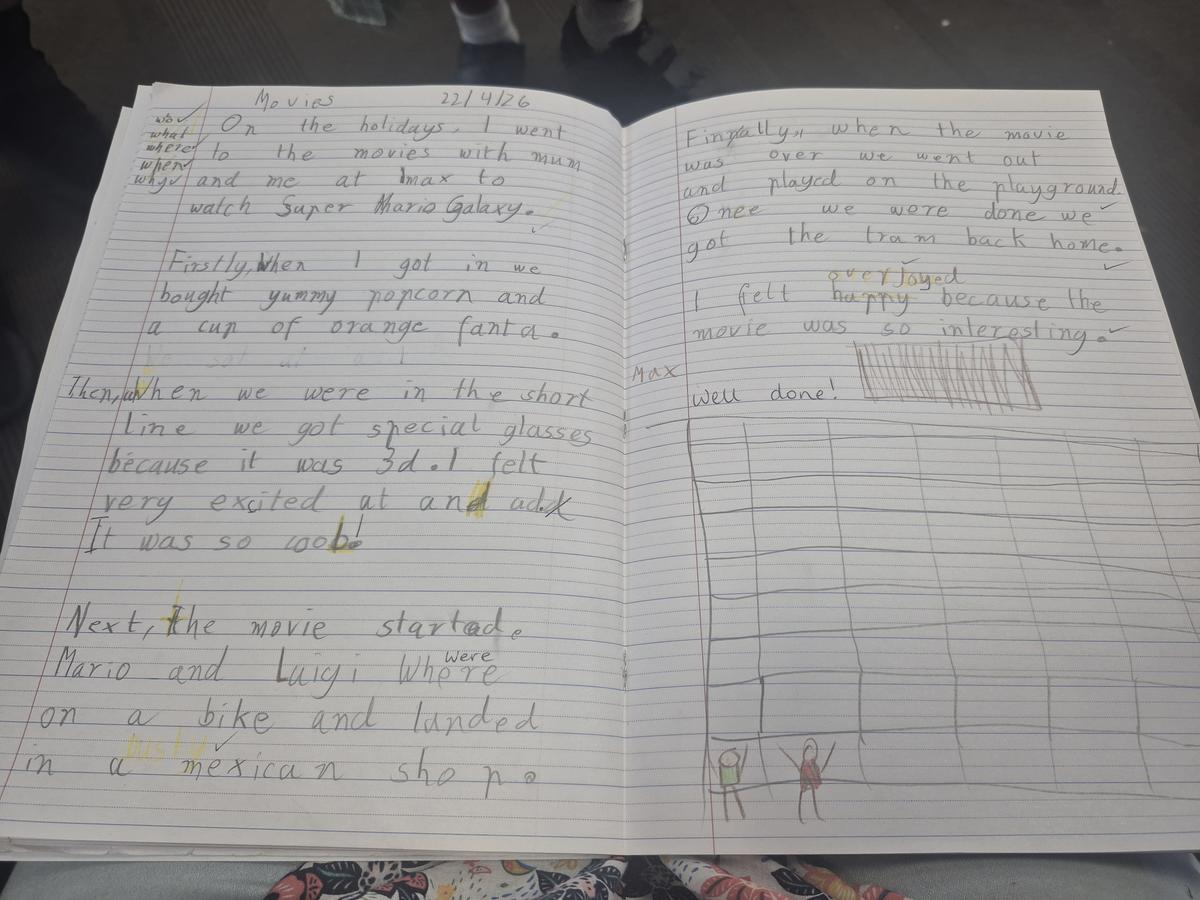 Movies 22/4/26
who
what
where
when
why
On the holidays, I went
to the movies with mum
and me at Imax to
watch Super Mario Galaxy.
Firstly, When I got in we
bought yummy popcorn and
a cup of orange fanta.
Then, when we were in the short
line we got special glasses
because it was 3d. I felt
very excited at and add
It was so coob!
Next, the movie started.
Mario and Luigi Where
were
on a bike and landed
busty
in a mexican shop.
Finally, when the movie
was over we went out
and played on the playground.
Once we were done we
got the tram back home.
overjoyed
I felt happy because the
movie was so interesting.
Max
Well done!